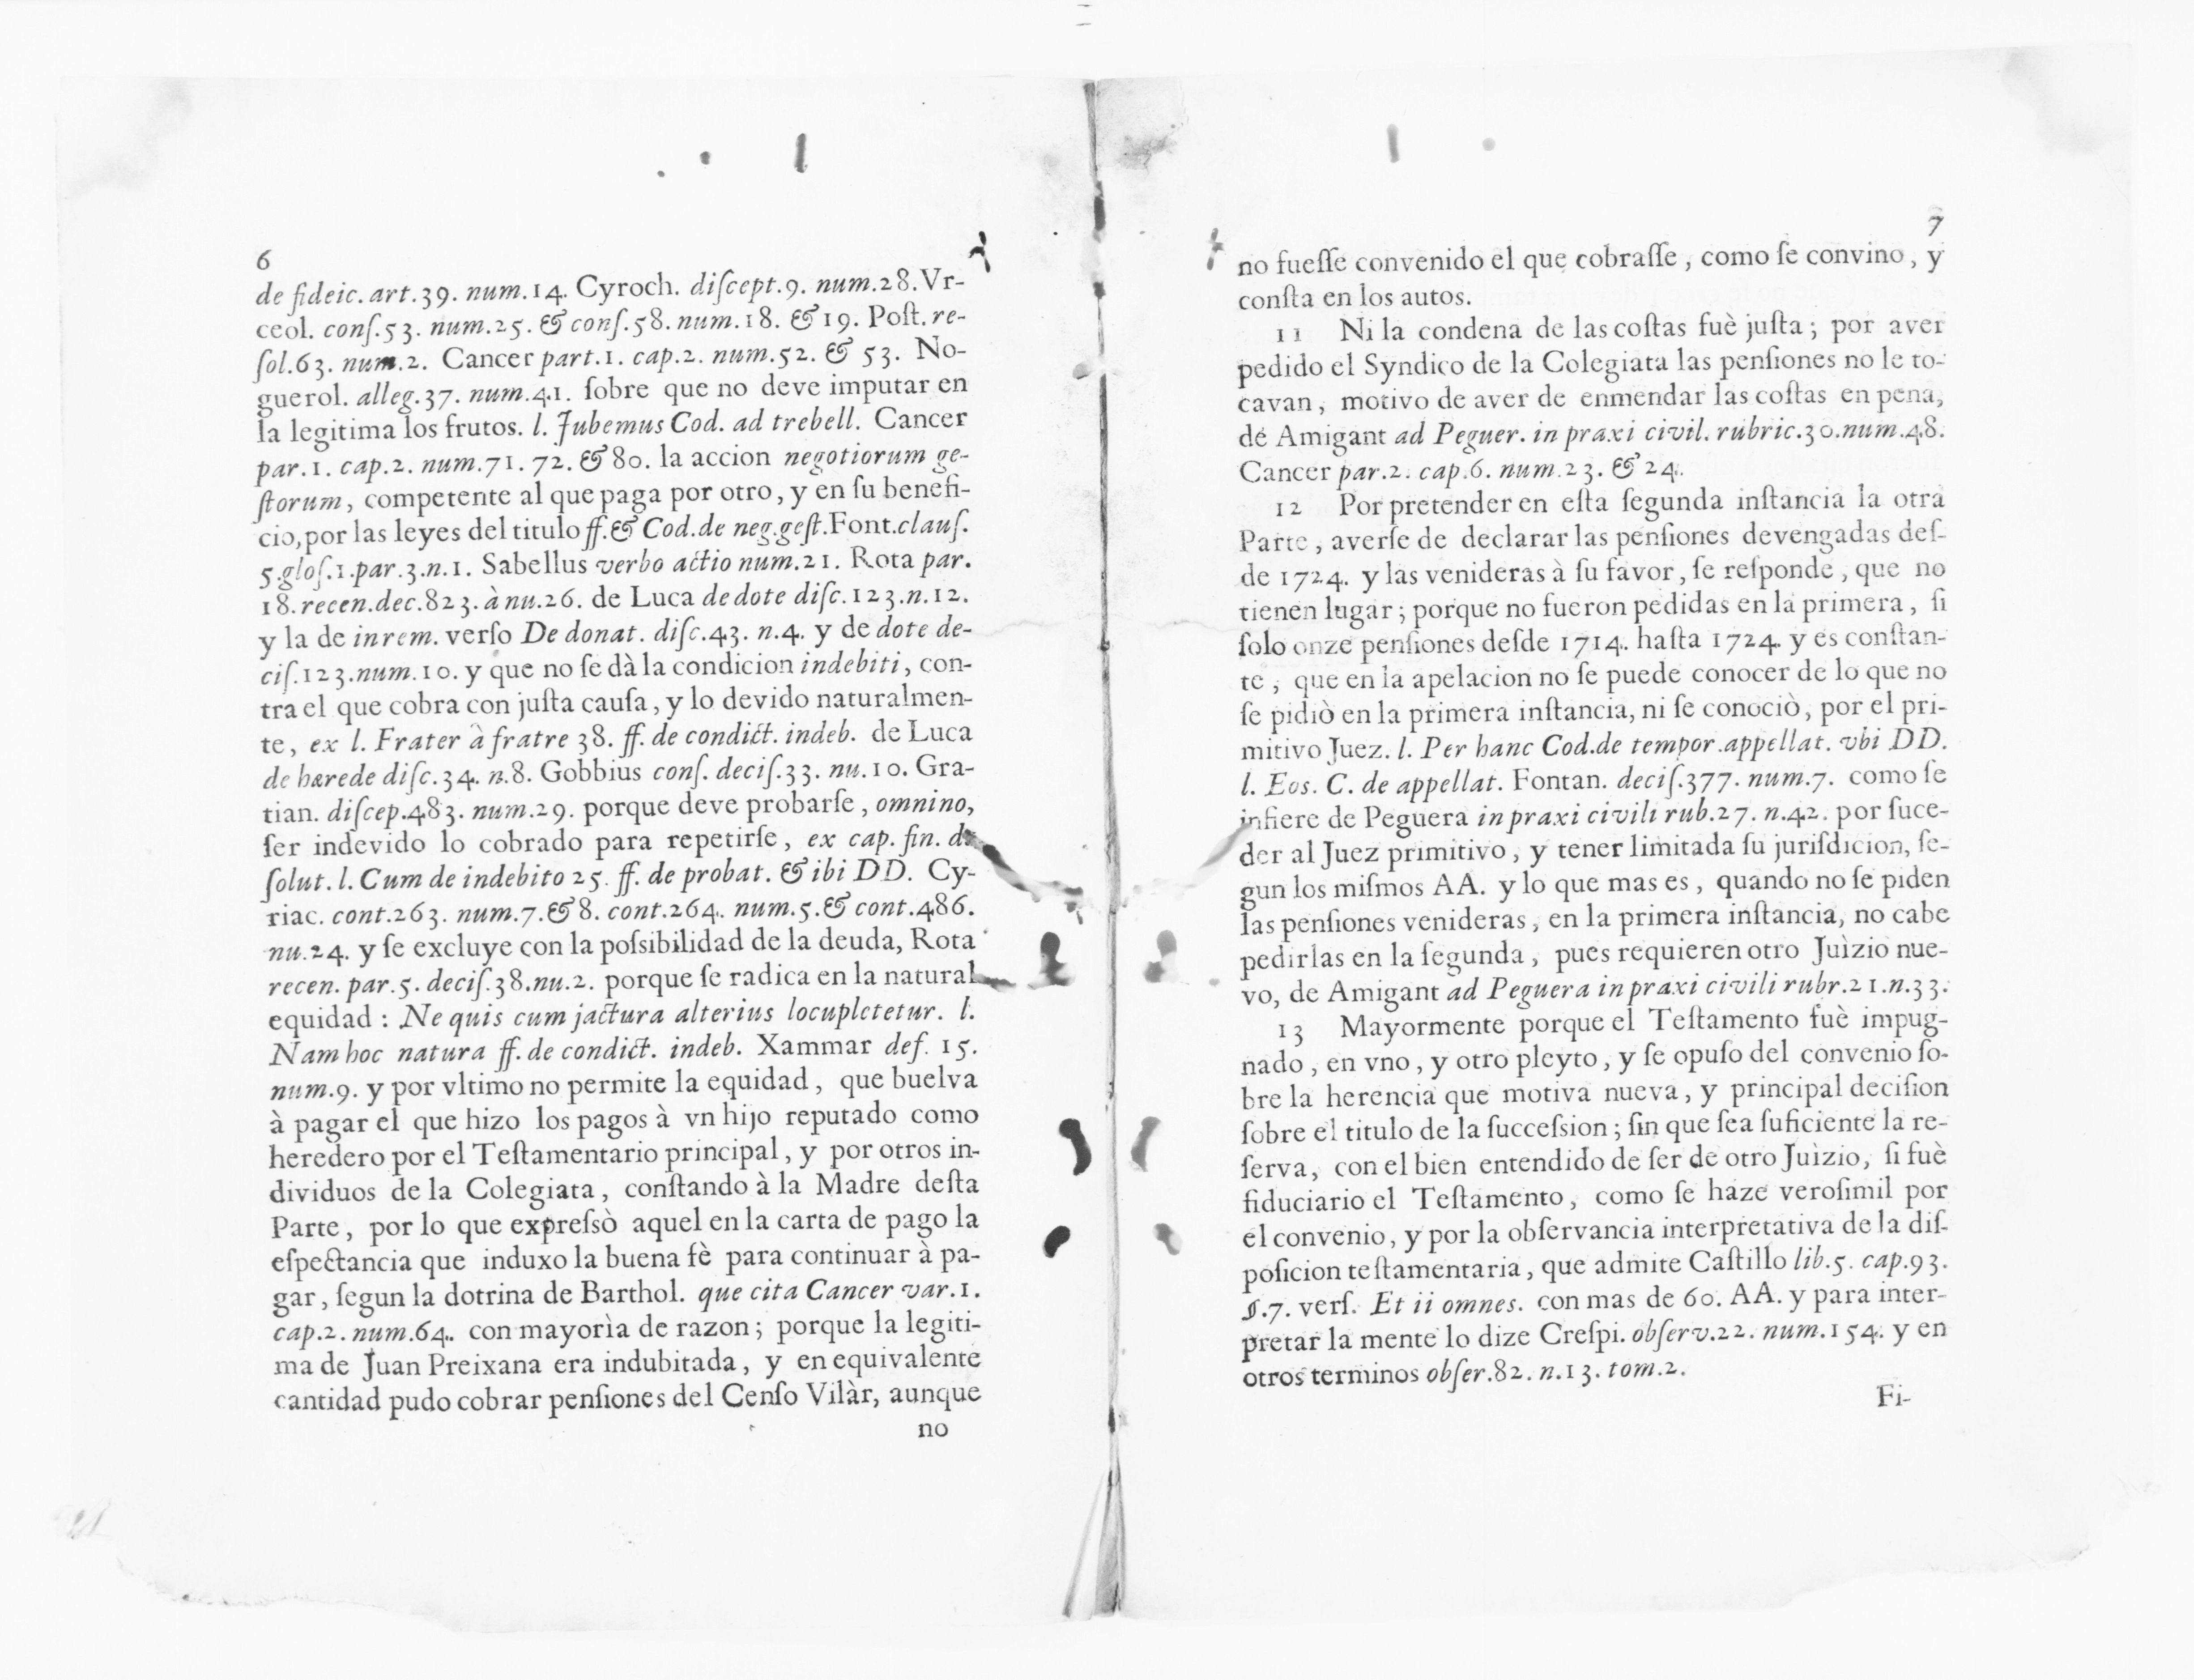 6
de fideic. art.39. num.14. Cyroch. diſcept.9. num.28. Vr-
ceol. conſ.53. num.25. & conſ.58. num.18. & 19. Poſt. re-
ſol.63. num.2. Cancer part.1. cap.2. num.52. & 53. No-
guerol. alleg.37. num.41. ſobre que no deve imputar en
la legitima los frutos. l. Jubemus Cod. ad trebell. Cancer
par.1. cap.2. num.71. 72. & 80. la accion negotiorum ge-
ſtorum, competente al que paga por otro, y en ſu benefi-
cio, por las leyes del titulo ff. & Cod. de neg. geſt. Font. clauſ.
5. gloſ.1. par.3. n.1. Sabellus verbo actio num.21. Rota par.
18. recen. dec.823. à nu.26. de Luca de dote diſc.123. n.12.
y la de in rem. verſo De donat. diſc.43. n.4. y de dote de-
ciſ.123. num.10. y que no ſe dà la condicion indebiti, con-
tra el que cobra con juſta cauſa, y lo devido naturalmen-
te, ex l. Frater à fratre 38. ff. de condict. indeb. de Luca
de hærede diſc.34. n.8. Gobbius conſ. deciſ.33. nu.10. Gra-
tian. diſcep.483. num.29. porque deve probarſe, omnino,
ſer indevido lo cobrado para repetirſe, ex cap. fin. de
ſolut. l. Cum de indebito 25. ff. de probat. & ibi DD. Cy-
riac. cont.263. num.7. & 8. cont.264. num.5. & cont.486.
nu.24. y ſe excluye con la poſsibilidad de la deuda, Rota
recen. par.5. deciſ.38. nu.2. porque ſe radica en la natural
equidad : Ne quis cum jactura alterius locupletetur. l.
Nam hoc natura ff. de condict. indeb. Xammar def. 15.
num.9. y por vltimo no permite la equidad, que buelva
à pagar el que hizo los pagos à vn hijo reputado como
heredero por el Teſtamentario principal, y por otros in-
dividuos de la Colegiata, conſtando à la Madre deſta
Parte, por lo que expreſsò aquel en la carta de pago la
eſpectancia que induxo la buena fè para continuar à pa-
gar, ſegun la dotrina de Barthol. que cita Cancer var.1.
cap.2. num.64. con mayorìa de razon; porque la legiti-
ma de Juan Preixana era indubitada, y en equivalente
cantidad pudo cobrar penſiones del Cenſo Vilàr, aunque
no
7
no fueſſe convenido el que cobraſſe, como ſe convino, y
conſta en los autos.
11 Ni la condena de las coſtas fuè juſta; por aver
pedido el Syndico de la Colegiata las penſiones no le to-
cavan, motivo de aver de enmendar las coſtas en pena,
de Amigant ad Peguer. in praxi civil. rubric.30. num.48.
Cancer par.2. cap.6. num.23. & 24.
12 Por pretender en eſta ſegunda inſtancia la otra
Parte, averſe de declarar las penſiones devengadas deſ-
de 1724. y las venideras à ſu favor, ſe reſponde, que no
tienen lugar; porque no fueron pedidas en la primera, ſi
ſolo onze penſiones deſde 1714. haſta 1724. y es conſtan-
te, que en la apelacion no ſe puede conocer de lo que no
ſe pidiò en la primera inſtancia, ni ſe conociò, por el pri-
mitivo Juez. l. Per hanc Cod. de tempor. appellat. vbi DD.
l. Eos. C. de appellat. Fontan. deciſ.377. num.7. como ſe
infiere de Peguera in praxi civili rub.27. n.42. por ſuce-
der al Juez primitivo, y tener limitada ſu juriſdicion, ſe-
gun los miſmos AA. y lo que mas es, quando no ſe piden
las penſiones venideras, en la primera inſtancia, no cabe
pedirlas en la ſegunda, pues requieren otro Juìzio nue-
vo, de Amigant ad Peguera in praxi civili rubr.21. n.33.
13 Mayormente porque el Teſtamento fuè impug-
nado, en vno, y otro pleyto, y ſe opuſo del convenio ſo-
bre la herencia que motiva nueva, y principal deciſion
ſobre el titulo de la ſucceſsion; ſin que ſea ſuficiente la re-
ſerva, con el bien entendido de ſer de otro Juìzio, ſi fuè
fiduciario el Teſtamento, como ſe haze veroſimil por
el convenio, y por la obſervancia interpretativa de la diſ-
poſicion teſtamentaria, que admite Caſtillo lib.5. cap.93.
§.7. verſ. Et ii omnes. con mas de 60. AA. y para inter-
pretar la mente lo dize Creſpi. obſerv.22. num.154. y en
otros terminos obſer.82. n.13. tom.2.
Fi-